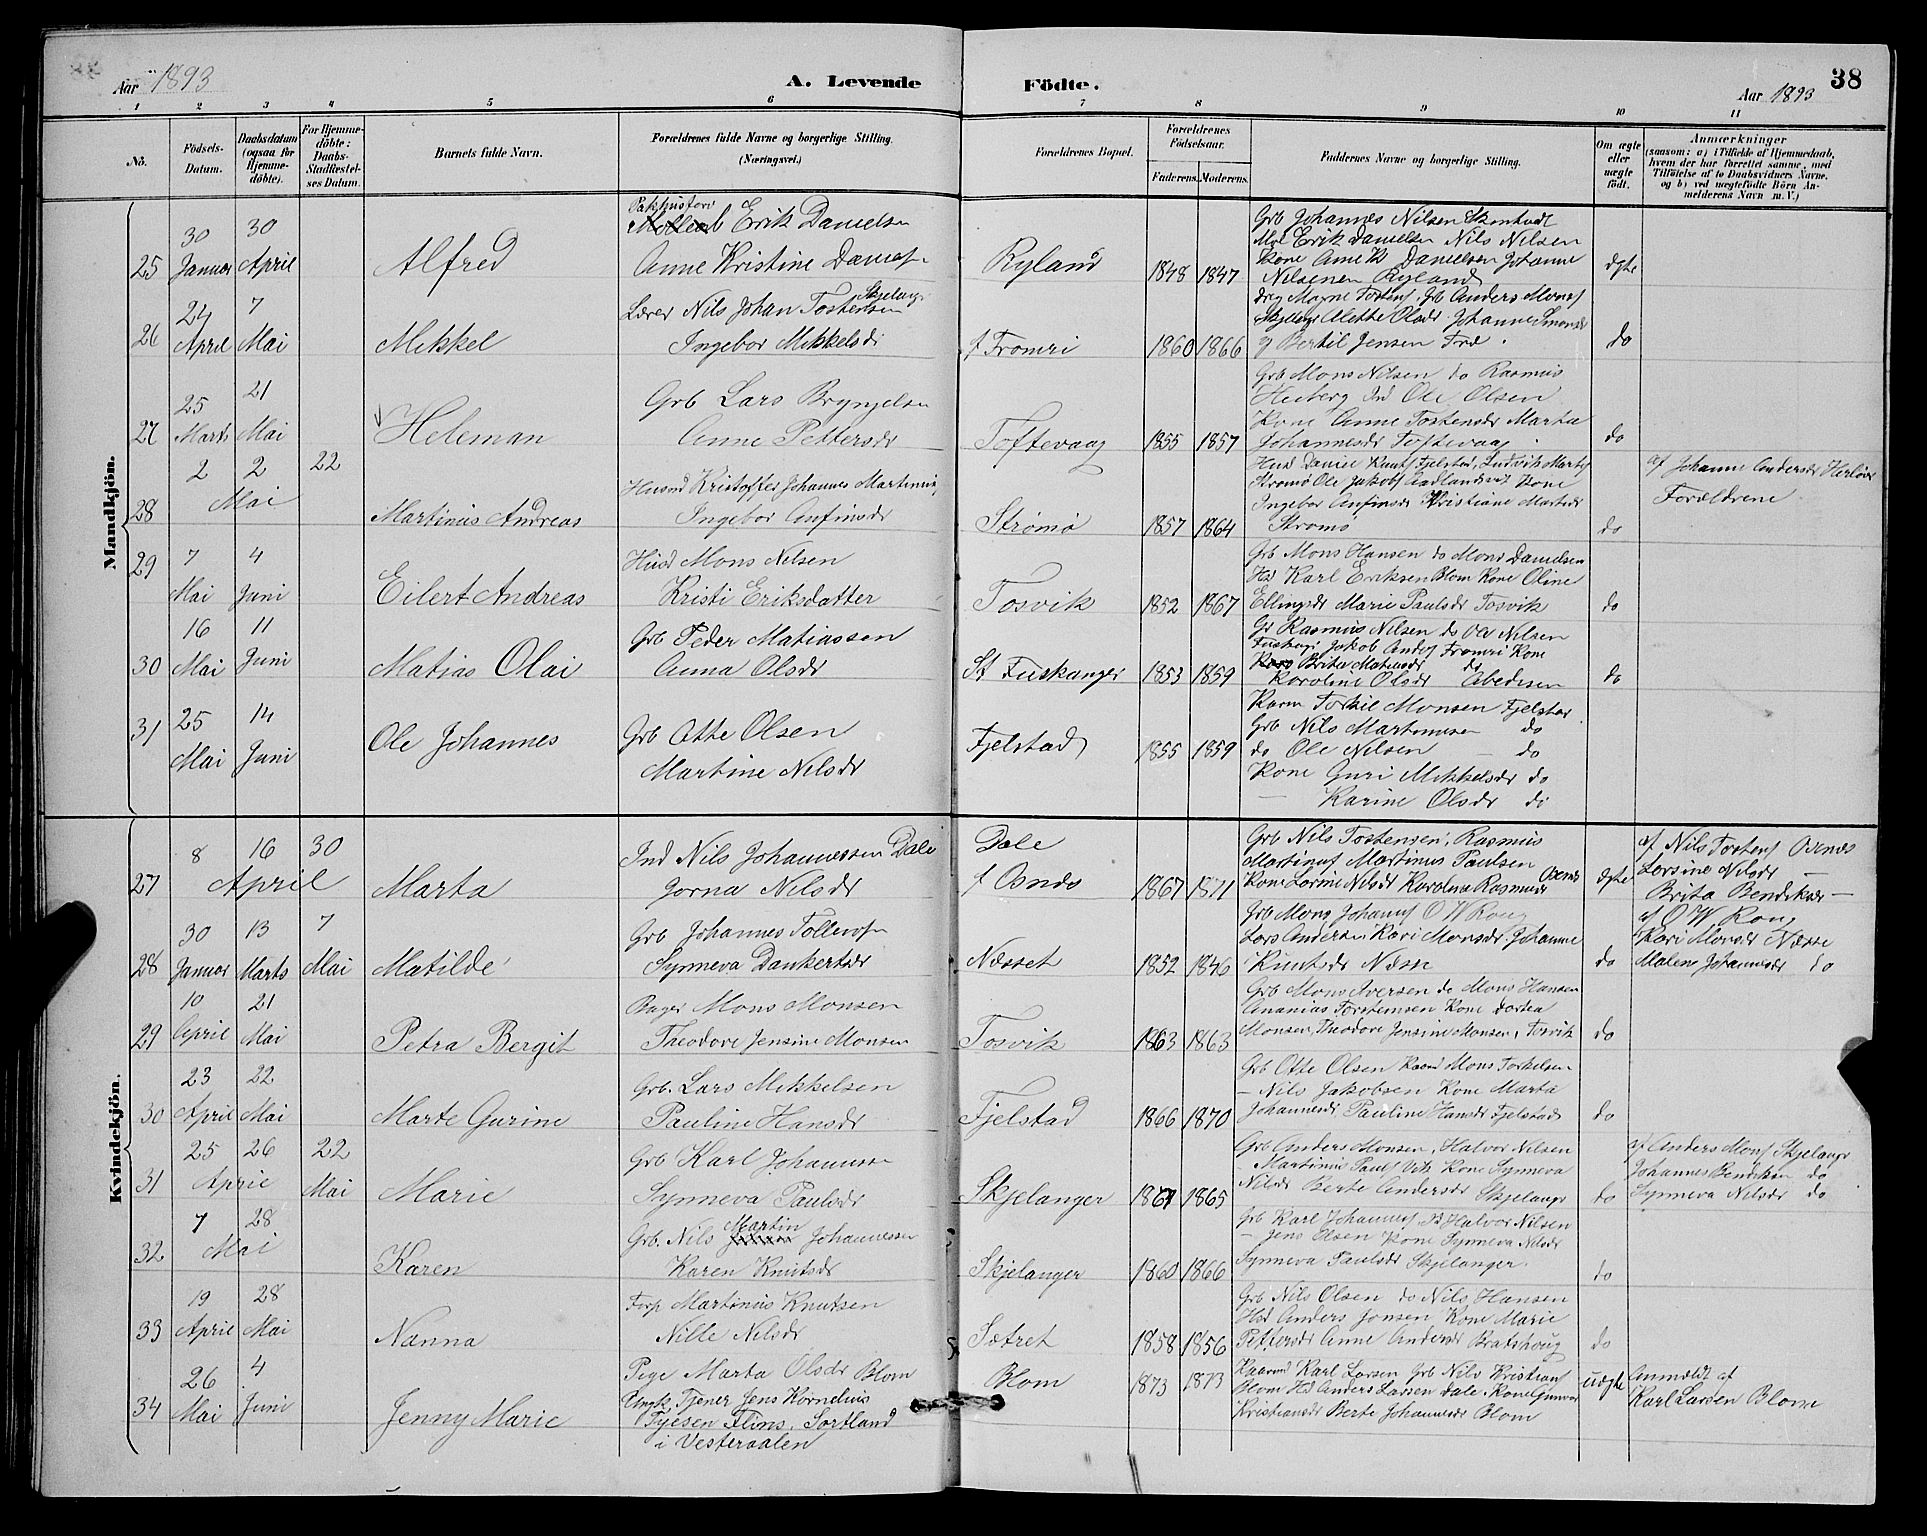 Aar 1893
A. Levende
Födte.
Aar 1893
38
1 2 3 4 5 6 7 8 9 10 11
No.
Födsels-Datum.
Daabsdatum (ogsaa for Hjemme-döbte).
For Hjemme-döbte: Daabs-Stadfæstel-ses Datum.
Barnets fulde Navn.
Forældrenes fulde Navne og borgerlige Stilling. (Næringsvei.)
Forældrenes Bopæl.
Forældrenes Födselsaar.
Faderens. Moderens.
Faddernes Navne og borgerlige Stilling.
Om ægte eller uægte födt.
Anmærkninger
(saasom: a) i Tilfælde af Hjemmedaab,
hvem der har forrettet samme, med
Tilföielse af to Daabsvidners Navne.
og b) ved uægtefödte Börn An-
melderens Navn m. V.)
Mandkjön.
25 30 Januar 30 April Alfred
Erik Danielsen
Anne Kristine
Ryland 1848 1847
Grb Johannes Nilsen
Erik Danielsen Nils Nilsen
Kone Anne K Danielsen Johanne
Nilsenen Ryland
ægte
26 24 April 7 Mai Mekkel
Lærer Nils Johan Tostensen Skjelangr
Ingebor Mekkelsdr
f Fromri 1860 1866
Magne Tostens. Grb Anders Mons
Alette Olsdr Johanne
Bertil Jensen
do
27 25 Marts 21 Mai Heleman
Grb Lars Brynjelsen
Anne Pettersdr
Toftevaag 1855 1857
Grb Mons Nilsen do Rasmus
Heiberg Ind Ole Olsen
Kone Anne Tostensdr Marta
Johannesdr Toftevaag
do
28 2 2 Mai 22 Martinus Andreas
Husmd Kristoffer Johannes Martinus
Ingebor Anfinsdr
Strømø 1857 1864
Ingebor Anfinsdr Kristiane
Strømø
do
af Johanne Andersdr Herløe
Forældrene
29 7 Mai 4 Juni Eilert Andreas
Husd Mons Nelsen
Kristi Eriksdatter
Tosvik 1852 1867
Grb Mons Hansen do Mons Danielsen
Hd Karl Eriksen Blom Kone Oline
Ellingsdr Marie Paulsdr Tosvik
do
30 16 Mai 11 Juni Matias Olai
Grb Peder Matiassen
Anna Olsdr
St Fuskanger 1853 1859
Gr Rasmus Nilsen do Ole Nilsen
Jakob Anders Fromri Kone
Brita Matiasdr do
Karoline Olsdr
do
31 25 Mai 14 Juni Ole Johannes
Grb Otte Olsen
Martine Nilsdr
Fjelstad 1855 1859
Kaarm Torkil Monsen Fjelstad
Grb Nils Martinusen do
do Ole Nilsen — do
Kone Guri Mikkelsdr do
— Karine Olsdr do
Kvindekjön.
27 8 16 April 30 Marta
Ind Nils Johannessen Dale
Jorna Nilsdr
Dale
f Osnes 1867 1871
Grb Nils Tostensen, Rasmus
Martinus Martinus Paulsen
Kone Lorine Nilsdr Karoline Rasmusdr Osenes
ægte
af Nils Tostens Osenes
Lorsine Nilsdr —
Brita Bendiksdr —
28 30 Januar 13 Marts 7 Mai Matilde
Grb Johannes Tollevsen
Synneva Dankertsdr
Nesset 1852 1846
Grb Mons Johanns O W Rong
Lars Andersen Kari Monsdr Johanne
Knutsdr Nesse
do
af O W Rong
Kari Monsdr Nesse
Malene Johannesdr do
29 10 April 21 Mai Petra Bergit
Bager Mons Monsen
Theodore Jensine Monsen
Tosvik 1863 1863
Grb Mons Iversen do Mons Hansen
Ananias Torstensen Kone Dortea
Monsen, Theodore Jensine Monsen, Tosvik
do
30 23 April 22 Mai Marte Gurine
Grb. Lars Mekkelsen
Pauline Hansdr
Fjelstad 1866 1870
Grb Otte Olsen Kaarm Mons Torkelsen
— Nils Jakobsen Kone Marta
Johannesdr Pauline Hansdr Fjelstad
do
31 25 26 April 22 Mai Marie
Grb Karl Johannesen
Synneva Paulsdr
Skjelanger 1861 1865
Grb Anders Monsen, Halvor Nilsen
— Martinus Pauls Vik Kone Synneva
Nilsdr Berte Andersdr Skjelangr
do
af Anders Mons Skjelangr
Johannes Bendiksen do
Synneva Nilsdr do
32 7 28 Mai Karen
Grb. Nils Martin Johannessen
Karen Knutsdr
Skjelanger 1860 1866
Grb Karl Johannes, Halvor Nilsen
— Jens Olsen Kone Synneva Nilsdr
Synneva Paulsdr Skjelanger.
do
33 19 April 28 Mai Nanna
Forp Martinus Knutsen
Nille Nilsdr
Sætret 1858 1856
Grb Nils Olsen do Nils Hansen
Hd Anders Jonsen Kone Marie
Pettersdr Anne Andersdr Bratshaug
do
34 26 Mai 4 Juni Jenny Marie
Pige Marta Olsdr Blom
Ungk. Tjener Jens Kornelius
Tyesen Flins, Sortland
i Vesteraalen
Blom 1873 1873
Kaarmd Karl Larsen Grb Nils Kristian
Blom Hd Anders Larsen Dale, Kone Gunvor
Kristiansdr Berte Johannesdr Blom
uægte
Anmeldt af
Karl Larsen Blom